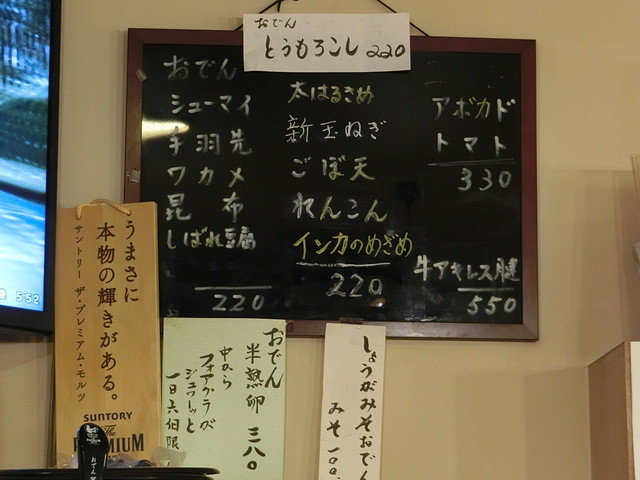 おでん
とうもろこし 220
おでん
シューマイ
手羽先
ワカメ
昆布
しばれ豆腐
220
太はるさめ
新玉ねぎ
ごぼ天
れんこん
インカのめざめ
220
アボカド
トマト
330
牛アキレス腱
550
5:52
うまさに
本物の輝きがある。
サントリー ザ・プレミアム・モルツ
SUNTORY
The
PREMIUM
おでん
半熟卵 三八〇
中から
フォアグラが
ジュワーッと
一日六個限
しょうがみそおでん
みそ 100
おでん